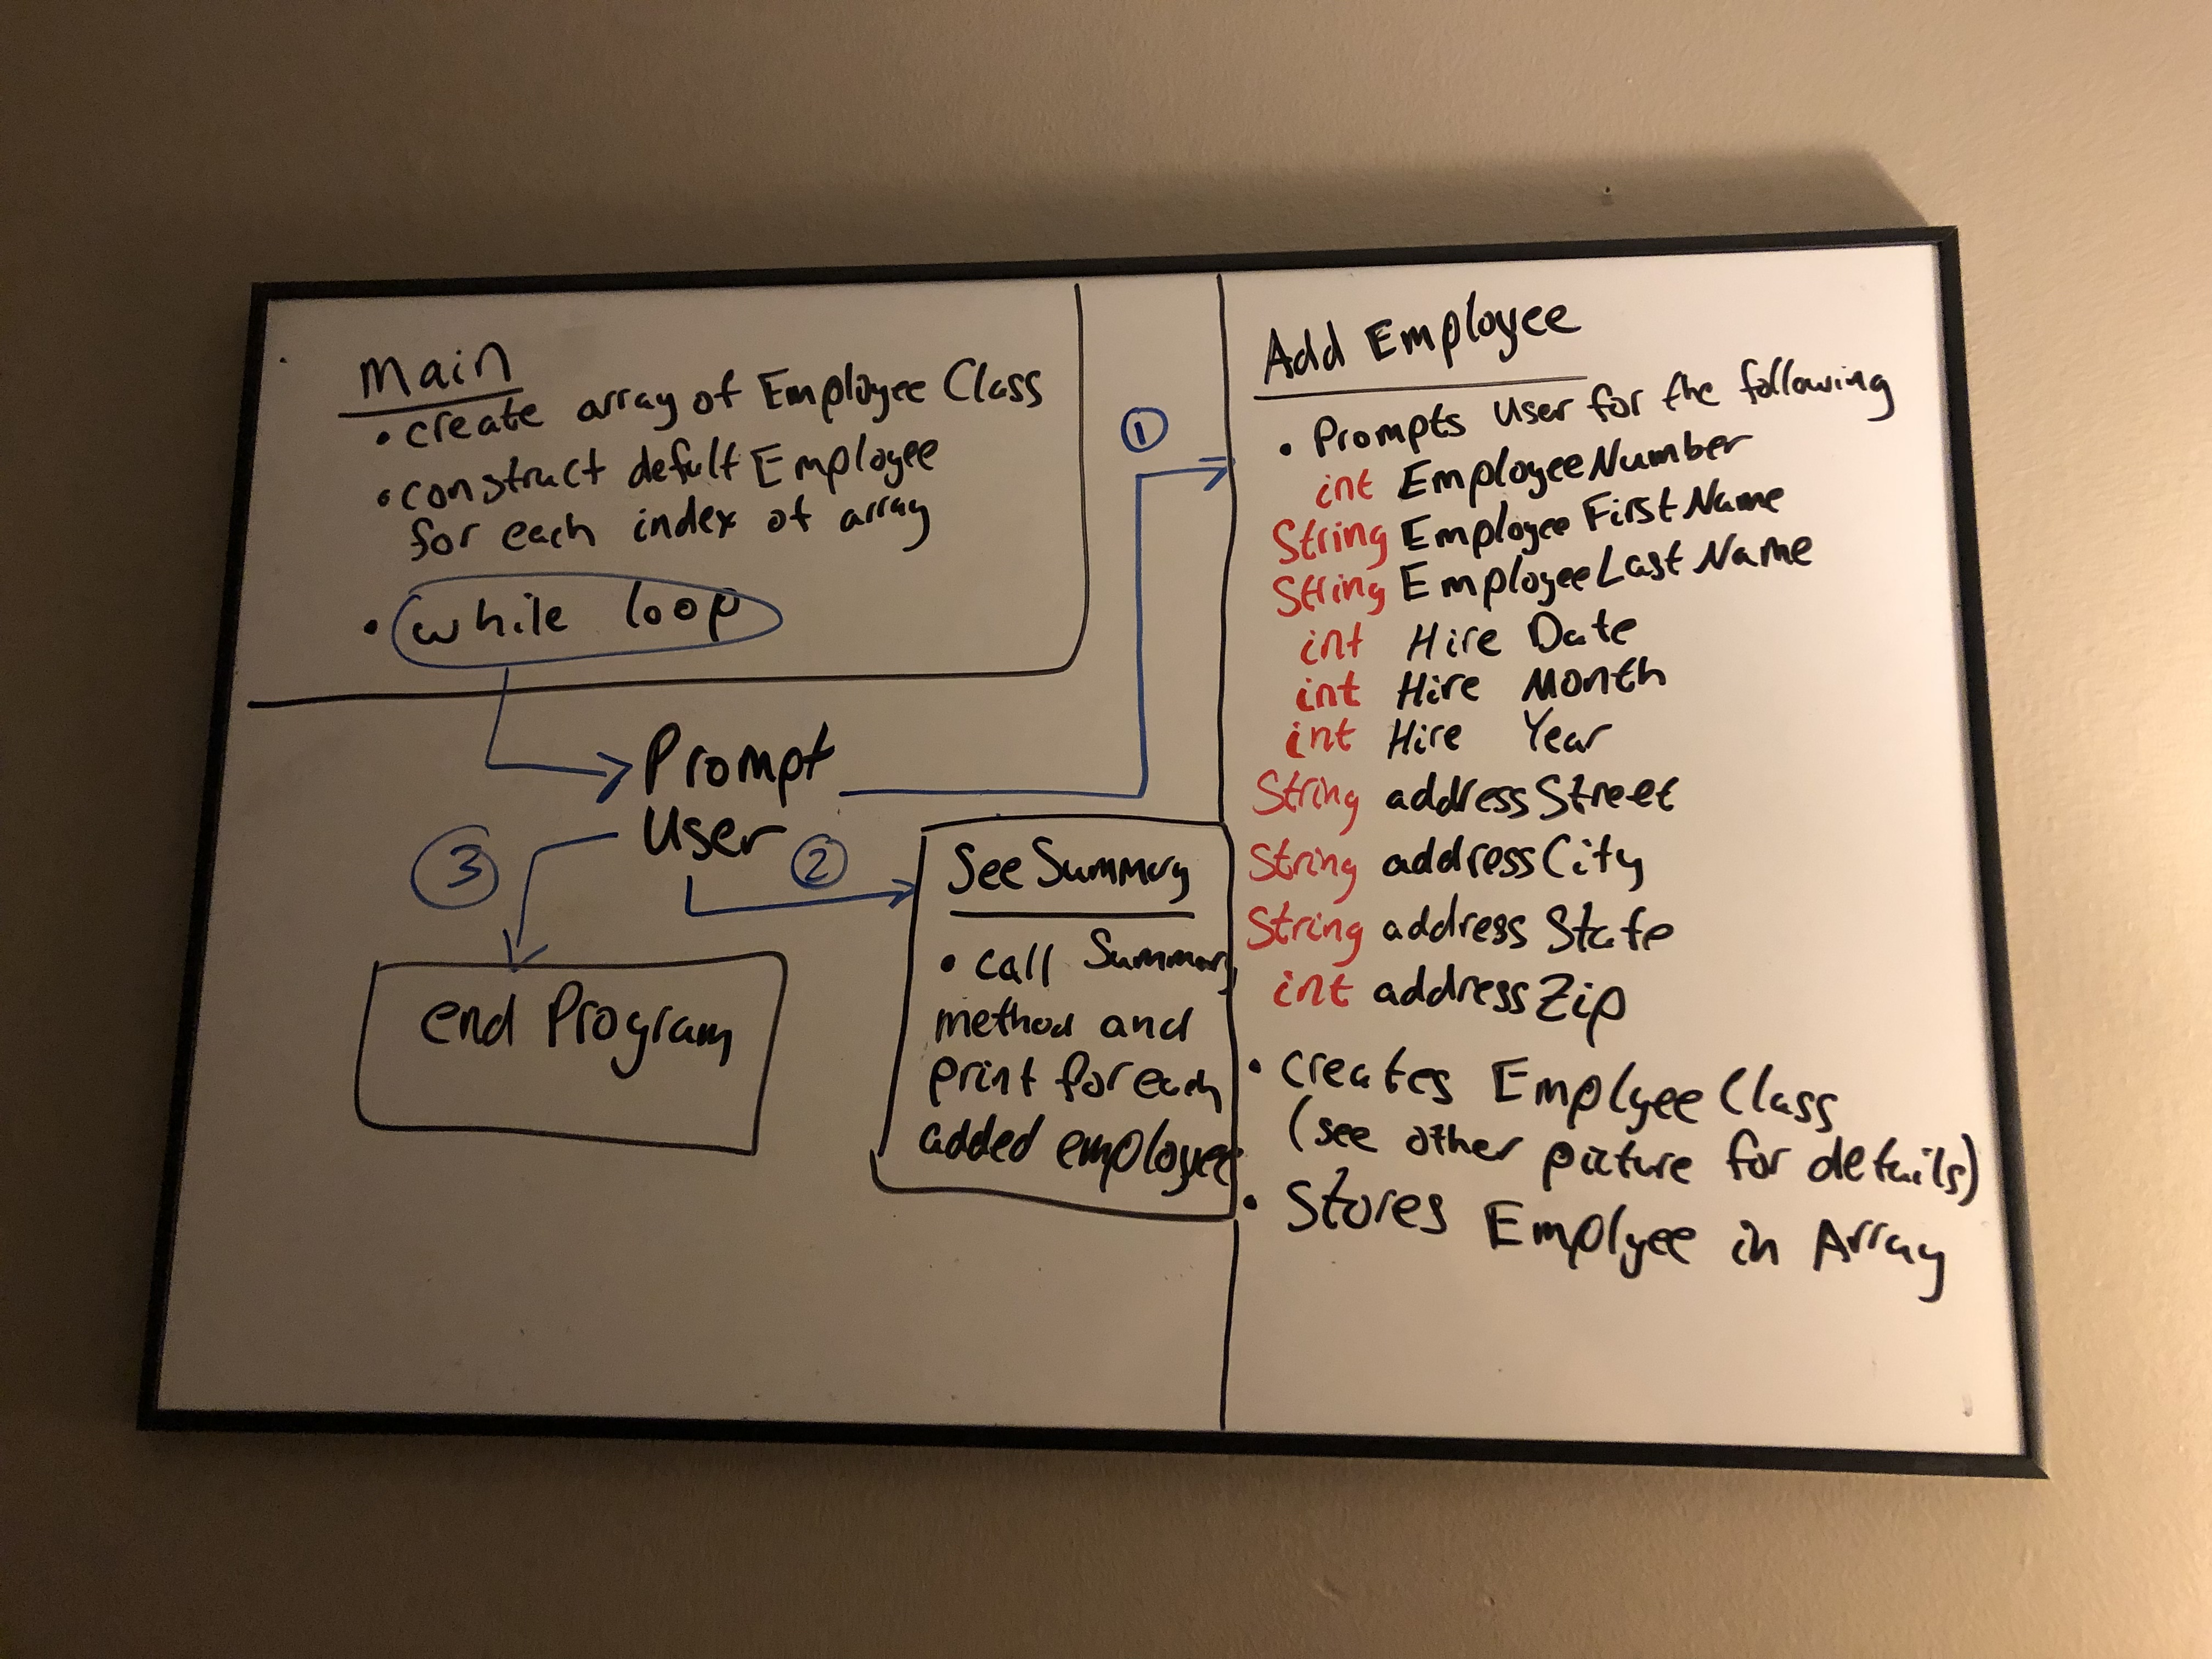 Main
• create array of Employee Class
• construct defult Employee
for each index of array
• while loop
Prompt
User
①
②
③
end Program
See Summry
• call Summary
method and
print for each
added employee
Add Employee
• Prompts User for the following
int EmployeeNumber
String Employee FirstName
String EmployeeLastName
int Hire Date
int Hire Month
int Hire Year
String addressStreet
String addressCity
String address State
int addressZip
• creates EmplyeeClass
(see other picture for details)
• Stores Emplyee in Array